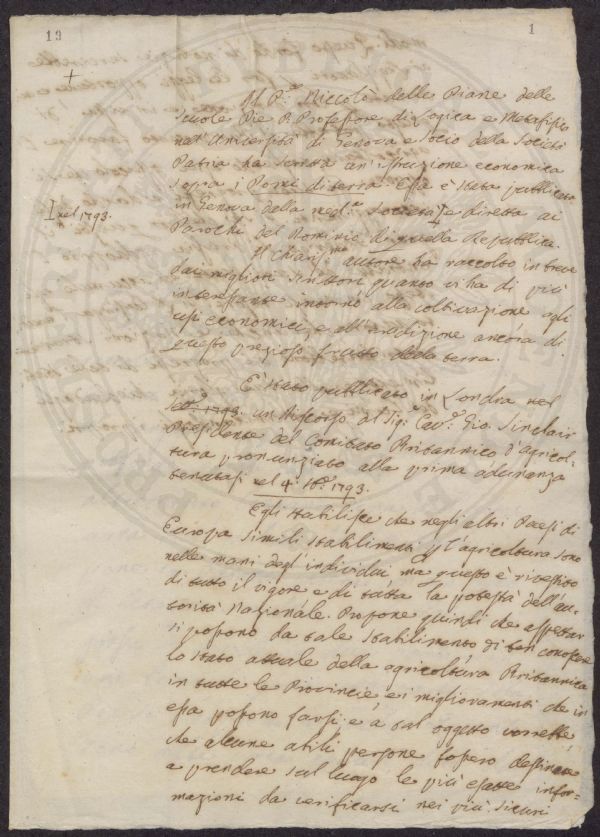 13
1
+
Al P.re Niccolò delle Piane delle
Scuole Pie P. Professore di Logica e Metafisica
nell'Università di Genova e Socio della Società
Patria ha scritta un'Istruzione economica
sopra i Pomi di terra. Essa è stata pubblicata
I nel 1793.
in Genova della med.a Società I e diretta ai
Parochi del Dominio di quella Repubblica.
Il chiariss.mo autore ha raccolto in breve
dai migliori scrittori quanto vi ha di più
interessante intorno alla coltivazione agli
usi economici, e all'erudizione ancora di
questo prezioso frutto della terra.
È stato pubblicato in Londra nel
1793. un discorso del Sig.r Cav.r Gio. Sinclair
Presidente del Comitato Britannico d'agricol-
tura pronunziato alla prima adunanza
tenutasi nel 4. 1793.
Egli stabilisce che negli altri Paesi di
Europa simili stabilimenti l'agricoltura sono
nelle mani degl'individui ma questo è rivestito
di tutto il vigore e di tutta la potestà dell'au-
torità Nazionale. Propone quindi che aspettar
si possono da tale stabilimento di ben conoscere
lo stato attuale della agricoltura Britannica
in tutte le Provincie e i miglioramenti che in
essa possono farsi e a tal oggetto vorrebbe
che alcune abili persone fossero destinate
a prendere sul luogo le più esatte infor-
mazioni da verificarsi nei più sicuri